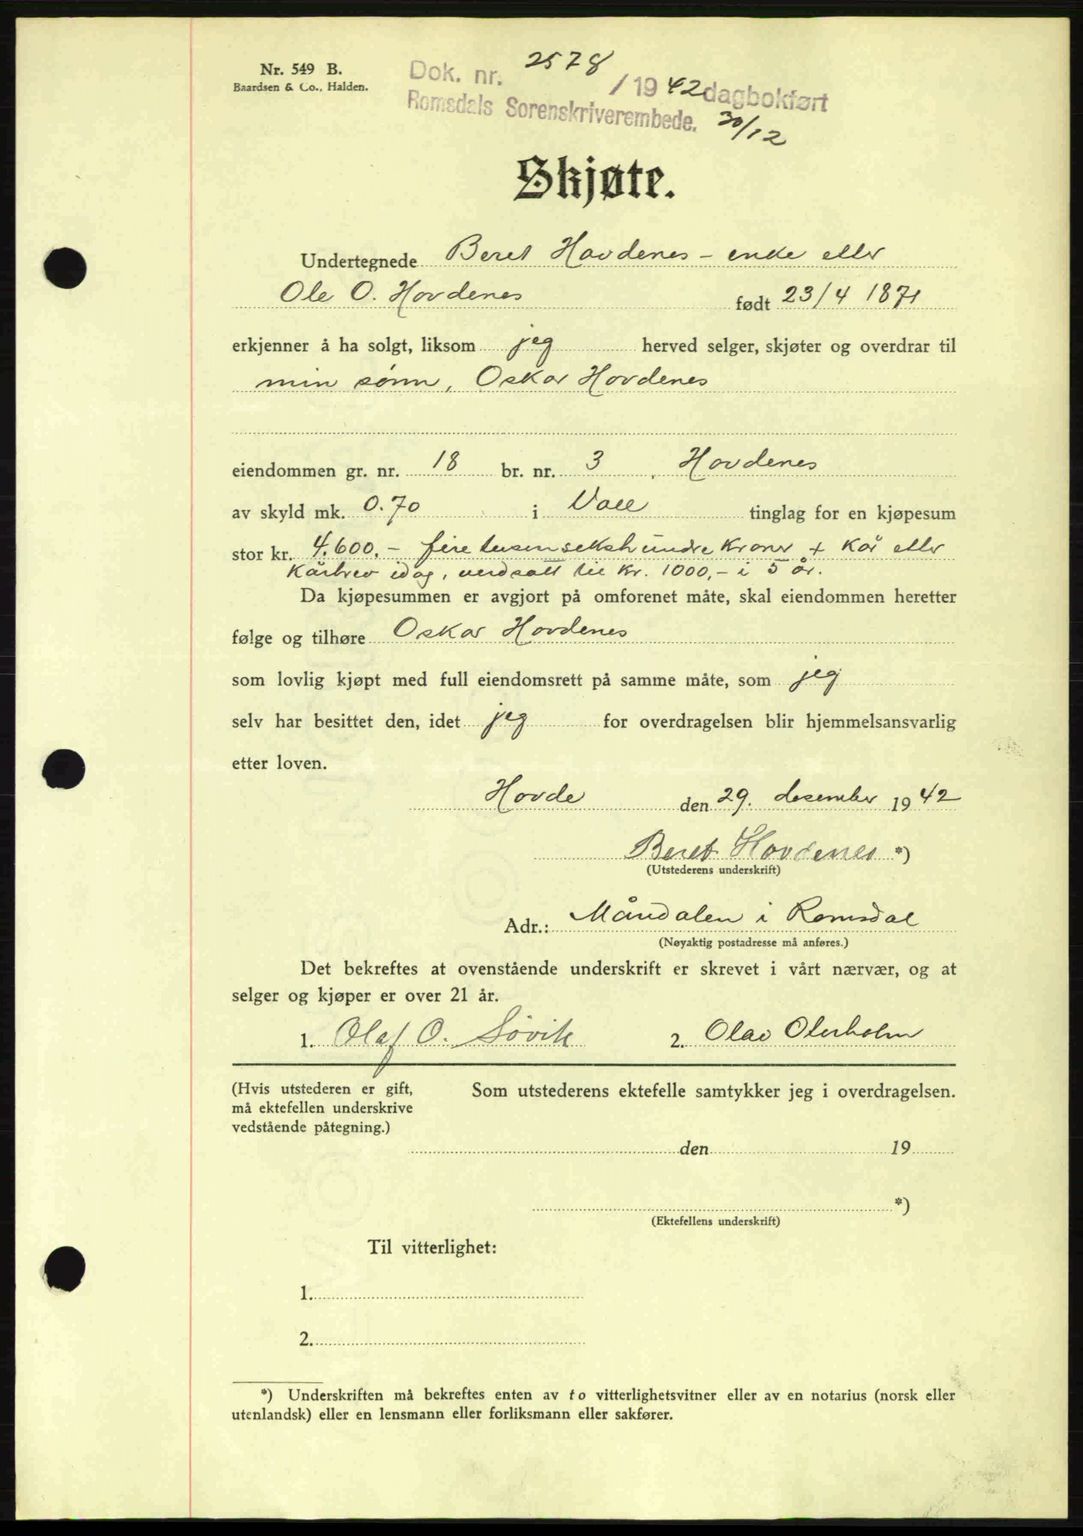 Nr. 549 B.
Baardsen & Co., Halden.
Dok. nr. 2578 / 1942 dagbokført
Romsdals Sorenskriverembede. 30/12
Skjøte.
Undertegnede Beret Hovdenes - enke etter
Ole O. Hovdenes født 23/4 1871
erkjenner å ha solgt, liksom jeg herved selger, skjøter og overdrar til
min sønn, Oskar Hovdenes
eiendommen gr. nr. 18 br. nr. 3, Hovdenes
av skyld mk. 0.70 i Voll tinglag for en kjøpesum
stor kr. 4.600,- fire tusen sekshundre kroner + kår etter
kårbrev idag, verdsatt til kr. 1000,- i 5 år.
Da kjøpesummen er avgjort på omforenet måte, skal eiendommen heretter
følge og tilhøre Oskar Hovdenes
som lovlig kjøpt med full eiendomsrett på samme måte, som jeg
selv har besittet den, idet jeg for overdragelsen blir hjemmelsansvarlig
etter loven.
Hovde den 29. desember 1942
Beret Hovdenes *)
(Utstederens underskrift)
Adr.: Måndalen i Romsdal
(Nøyaktig postadresse må anføres.)
Det bekreftes at ovenstående underskrift er skrevet i vårt nærvær, og at
selger og kjøper er over 21 år.
1. Olaf O. Søvik 2. Olav
(Hvis utstederen er gift, Som utstederens ektefelle samtykker jeg i overdragelsen.
må ektefellen underskrive
vedstående påtegning.)
den 19
*)
(Ektefellens underskrift)
Til vitterlighet:
1.
2.
*) Underskriften må bekreftes enten av to vitterlighetsvitner eller av en notarius (norsk eller
utenlandsk) eller en lensmann eller forliksmann eller sakfører.